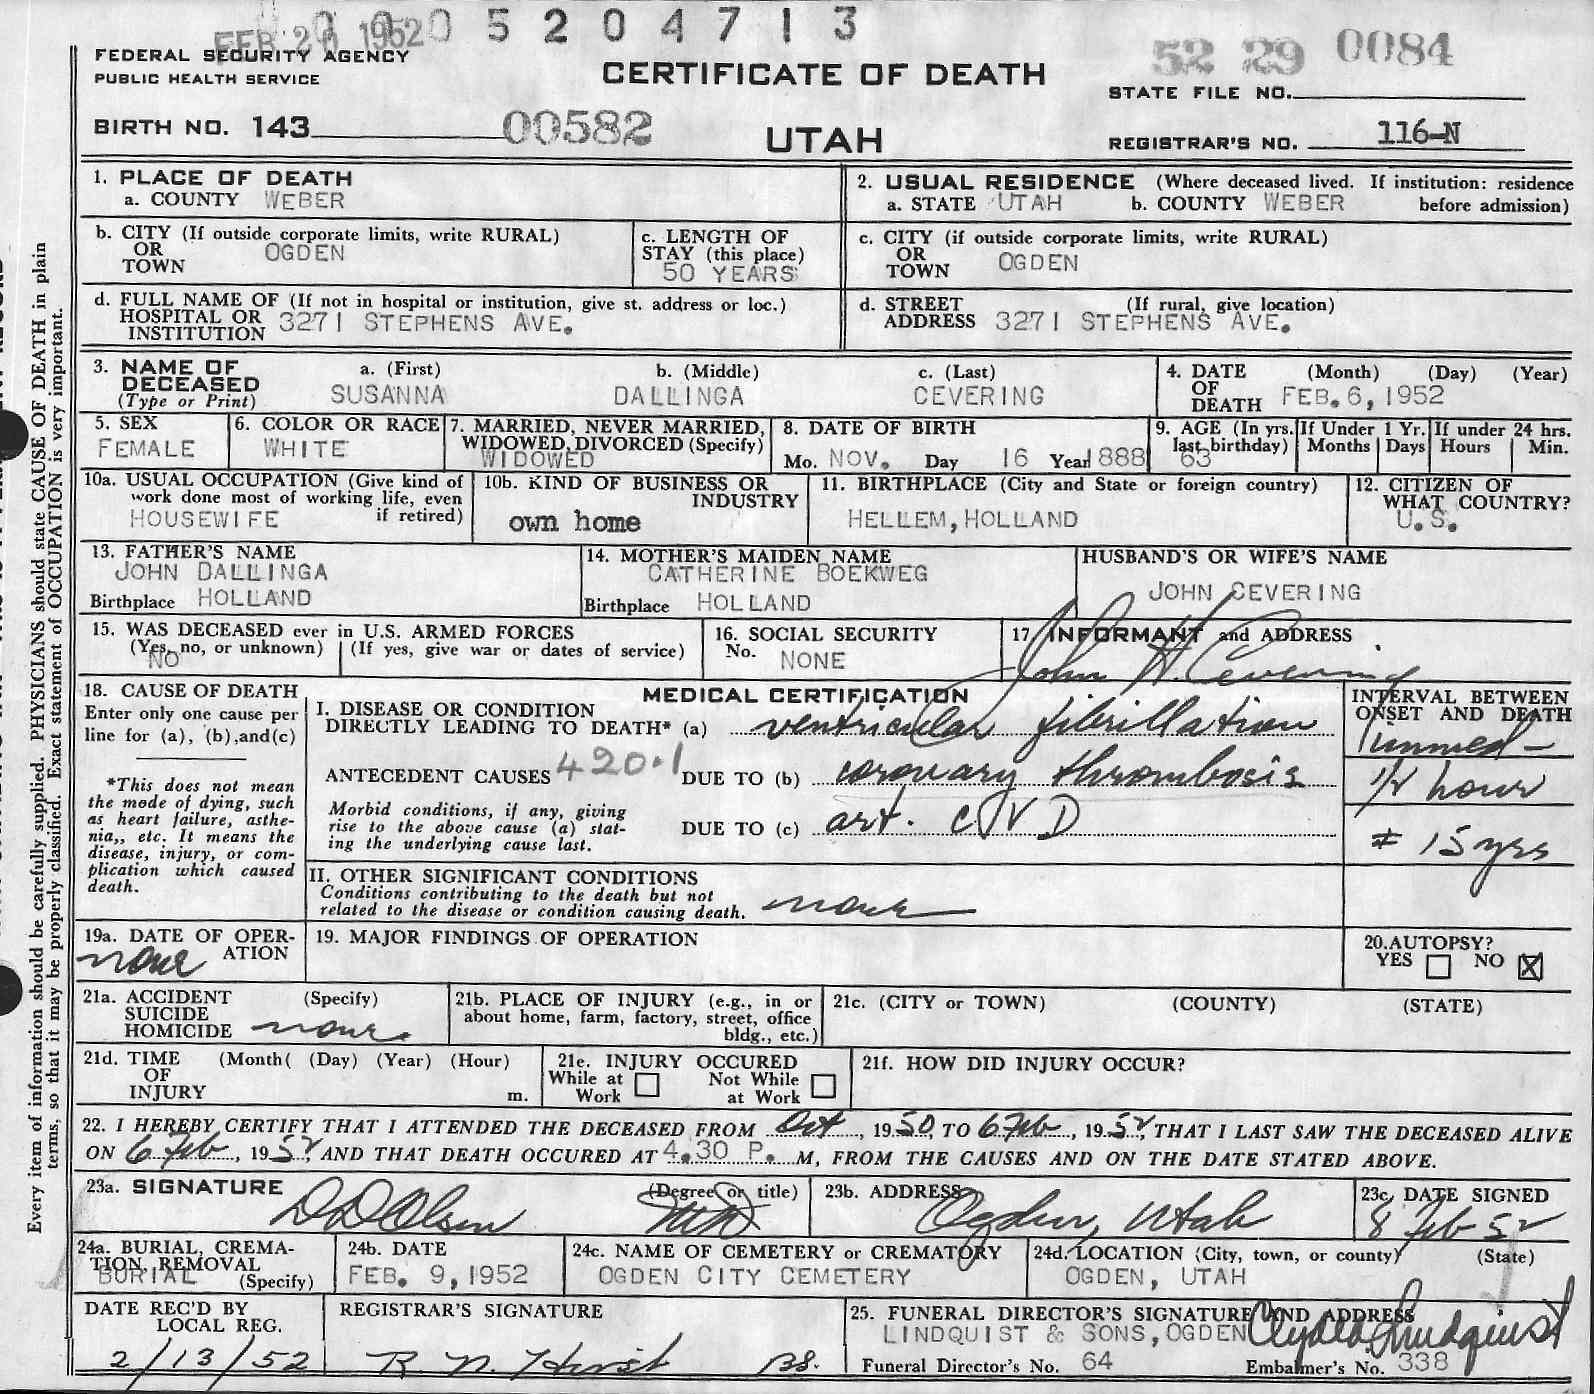 0005204713
FEB 20 1952
FEDERAL SECURITY AGENCY
PUBLIC HEALTH SERVICE
CERTIFICATE OF DEATH
52 29 0084
STATE FILE NO.
BIRTH NO. 143 00582
UTAH
REGISTRAR'S NO. 116-N
1. PLACE OF DEATH
a. COUNTY WEBER
2. USUAL RESIDENCE (Where deceased lived. If institution: residence before admission)
a. STATE UTAH b. COUNTY WEBER
b. CITY (If outside corporate limits, write RURAL)
OR TOWN OGDEN
c. LENGTH OF STAY (this place)
50 YEARS
c. CITY (if outside corporate limits, write RURAL)
OR TOWN OGDEN
d. FULL NAME OF (If not in hospital or institution, give st. address or loc.)
HOSPITAL OR INSTITUTION 3271 STEPHENS AVE.
d. STREET ADDRESS (If rural, give location)
3271 STEPHENS AVE.
3. NAME OF DECEASED (Type or Print)
a. (First) b. (Middle) c. (Last)
SUSANNA DALLINGA CEVERING
4. DATE OF DEATH (Month) (Day) (Year)
FEB. 6, 1952
5. SEX
FEMALE
6. COLOR OR RACE
WHITE
7. MARRIED, NEVER MARRIED, WIDOWED, DIVORCED (Specify)
WIDOWED
8. DATE OF BIRTH
Mo. NOV. Day 16 Year 1888
9. AGE (In yrs. last birthday) 63
If Under 1 Yr. Months Days
If under 24 hrs. Hours Min.
10a. USUAL OCCUPATION (Give kind of work done most of working life, even if retired)
HOUSEWIFE
10b. KIND OF BUSINESS OR INDUSTRY
own home
11. BIRTHPLACE (City and State or foreign country)
HELLEM, HOLLAND
12. CITIZEN OF WHAT COUNTRY?
U.S.
13. FATHER'S NAME
JOHN DALLINGA
Birthplace HOLLAND
14. MOTHER'S MAIDEN NAME
CATHERINE BOEKWEG
Birthplace HOLLAND
HUSBAND'S OR WIFE'S NAME
JOHN CEVERING
15. WAS DECEASED ever in U.S. ARMED FORCES
(Yes, no, or unknown) (If yes, give war or dates of service)
NO
16. SOCIAL SECURITY No. NONE
17. INFORMANT and ADDRESS
John H. Cevering
18. CAUSE OF DEATH
Enter only one cause per line for (a), (b), and (c)
*This does not mean the mode of dying, such as heart failure, asthenia,, etc. It means the disease, injury, or complication which caused death.
MEDICAL CERTIFICATION
INTERVAL BETWEEN ONSET AND DEATH
I. DISEASE OR CONDITION DIRECTLY LEADING TO DEATH* (a) ventricular fibrillation
immed-
ANTECEDENT CAUSES 420.1 DUE TO (b) coronary thrombosis
1/2 hour
Morbid conditions, if any, giving rise to the above cause (a) stating the underlying cause last.
DUE TO (c) art. C V D
15 yrs
II. OTHER SIGNIFICANT CONDITIONS
Conditions contributing to the death but not related to the disease or condition causing death. none
19a. DATE OF OPERATION
none
19. MAJOR FINDINGS OF OPERATION
20. AUTOPSY?
YES NO X
21a. ACCIDENT SUICIDE HOMICIDE (Specify)
none
21b. PLACE OF INJURY (e.g., in or about home, farm, factory, street, office bldg., etc.)
21c. (CITY or TOWN) (COUNTY) (STATE)
21d. TIME OF INJURY (Month( (Day) (Year) (Hour) m.
21e. INJURY OCCURED
While at Work Not While at Work
21f. HOW DID INJURY OCCUR?
22. I HEREBY CERTIFY THAT I ATTENDED THE DECEASED FROM Oct, 1950, TO 6 Feb, 1952, THAT I LAST SAW THE DECEASED ALIVE
ON 6 Feb, 1952 AND THAT DEATH OCCURED AT 4.30 P. M, FROM THE CAUSES AND ON THE DATE STATED ABOVE.
23a. SIGNATURE (Degree or title)
D D Olsen MD
23b. ADDRESS
Ogden, Utah
23c. DATE SIGNED
8 Feb 52
24a. BURIAL, CREMATION, REMOVAL (Specify)
BURIAL
24b. DATE
FEB. 9, 1952
24c. NAME OF CEMETERY or CREMATORY
OGDEN CITY CEMETERY
24d. LOCATION (City, town, or county) (State)
OGDEN, UTAH
DATE REC'D BY LOCAL REG.
2/13/52
REGISTRAR'S SIGNATURE
R. N. Hirst BS.
25. FUNERAL DIRECTOR'S SIGNATURE AND ADDRESS
LINDQUIST & SONS, OGDEN Clyde Lindquist
Funeral Director's No. 64 Embalmer's No. 338
Every item of information should be carefully supplied. PHYSICIANS should state CAUSE OF DEATH in plain
terms, so that it may be properly classified. Exact statement of OCCUPATION is very important.